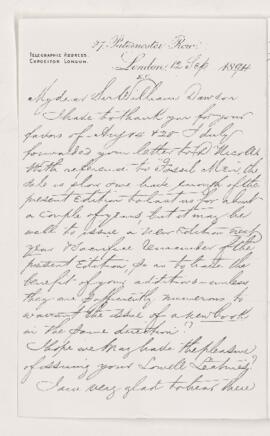 27, Paternoster Row,
TELEGRAPHIC ADDRESS,
EXPOSITOR LONDON.
London, 12 Sep 1894
My dear Sir William Dawson
I have to thank you for your
favors of Aug 14 & 28. I duly
forwarded your letter to Dr Nicoll.
With reference to Fossil Men, the
sale is slow & we have enough of the
present Edition to last us for about
a couple of years but it may be
well to issue a new Edition next
year & sacrifice remainder of the
present Edition, so as to have the
benefit of your additions – unless
they are sufficiently numerous to
warrant the issue of a new book
in the same direction?
I hope we may have the pleasure
of issuing your Lowell Lectures?
I am very glad to hear